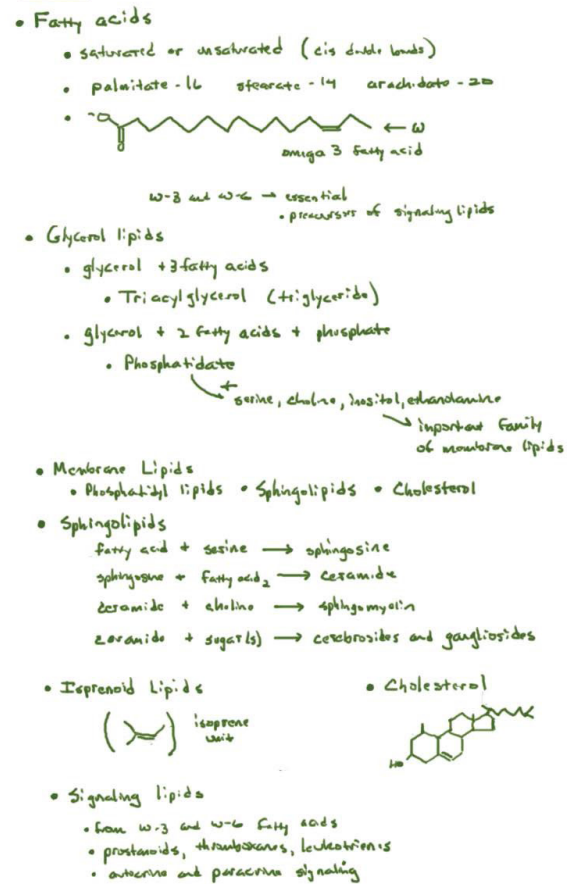 • Fatty acids
• saturated or unsaturated (cis double bonds)
• palmitate - 16 stearate - 14 arachidate - 20
• -O O ← ω
omega 3 fatty acid
ω-3 and ω-6 → essential
• precursors of signaling lipids
• Glycerol lipids
• glycerol + 3 fatty acids
• Triacylglycerol (triglyceride)
• glycerol + 2 fatty acids + phosphate
• Phosphatidate
+
serine, choline, inositol, ethanolamine
important family
of membrane lipids
• Membrane Lipids
• Phosphatidyl lipids • Sphingolipids • Cholesterol
• Sphingolipids
fatty acid + serine → sphingosine
sphingosine + fatty acid₂ → ceramide
ceramide + choline → sphingomyelin
ceramide + sugar(s) → cerebrosides and gangliosides
• Isoprenoid Lipids • Cholesterol
isoprene
unit
HO
• Signaling lipids
• from ω-3 and ω-6 fatty acids
• prostanoids, thromboxanes, leukotrienes
• autocrine and paracrine signaling